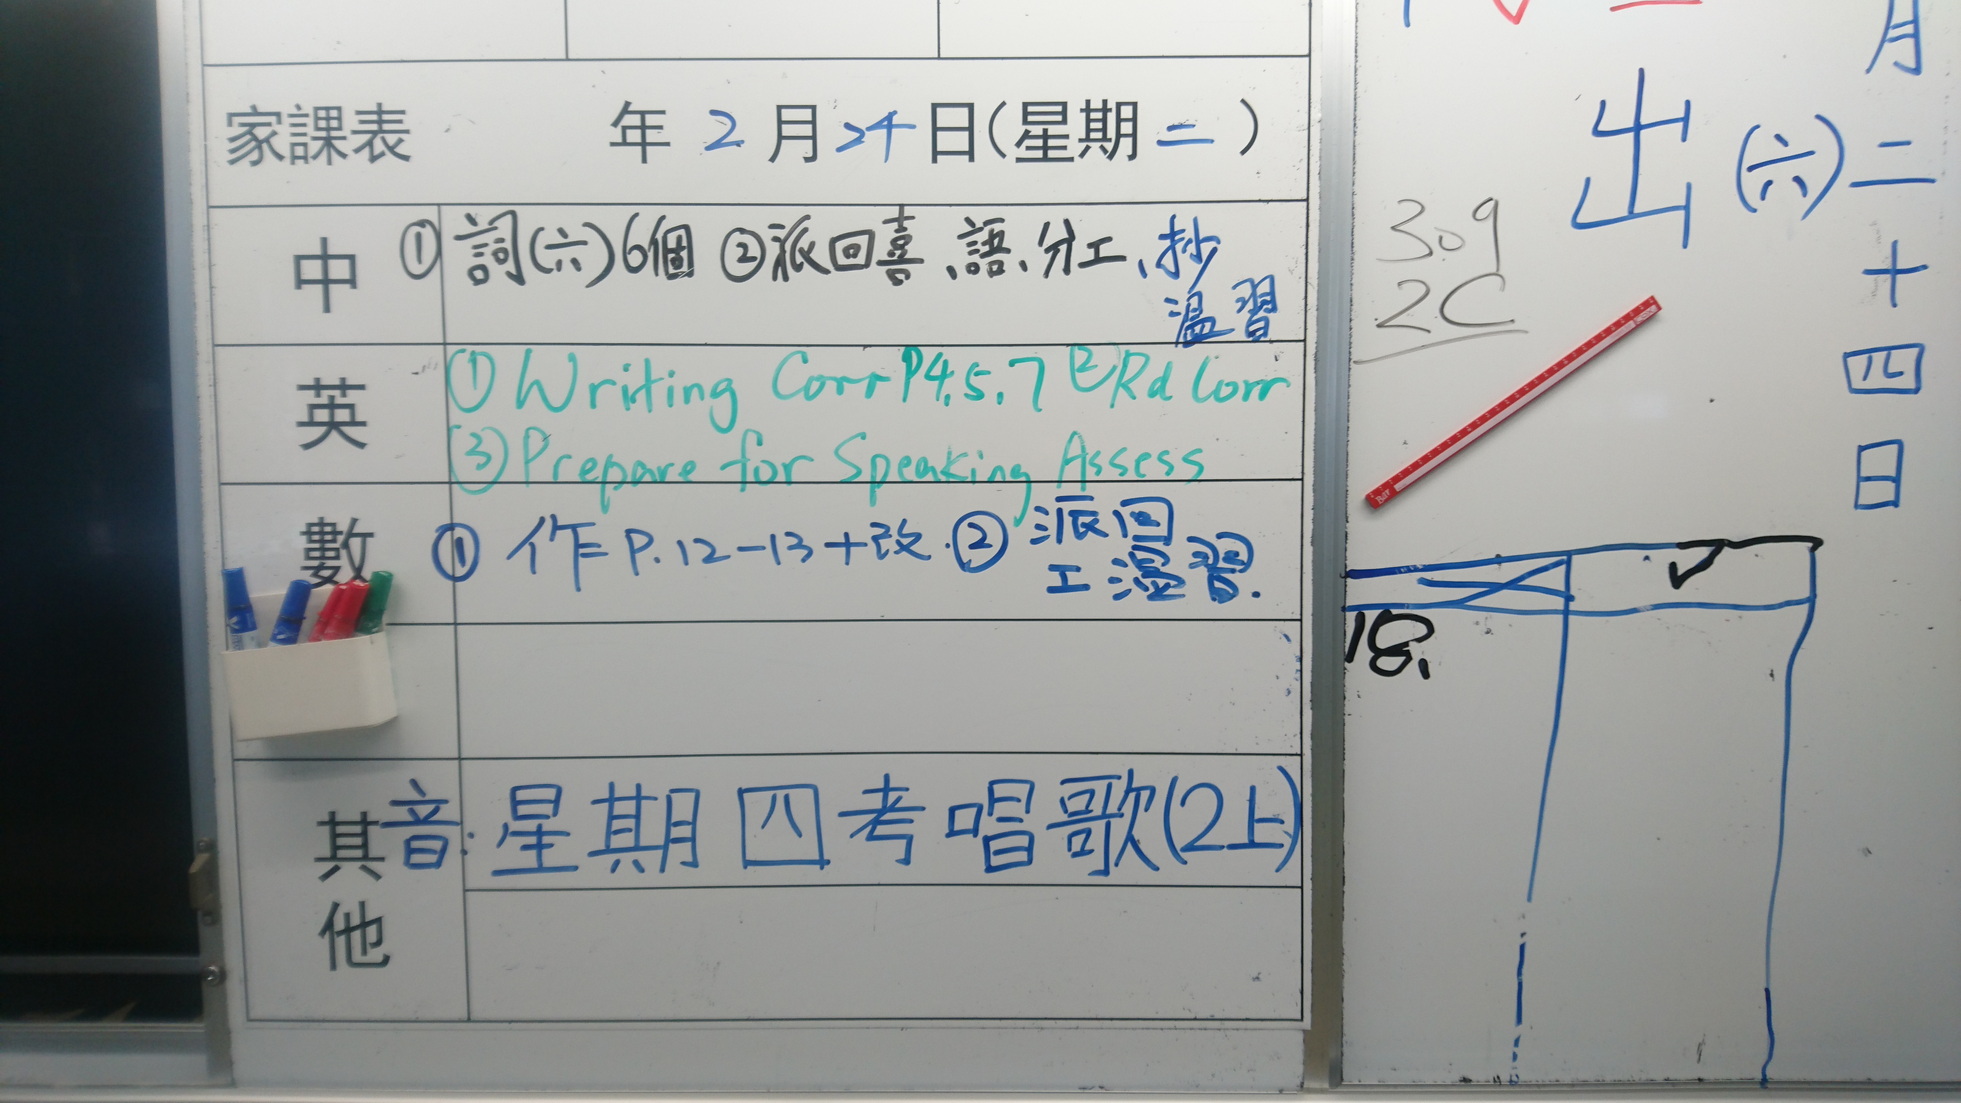 家課表 年 2 月 24 日(星期 二 )
中 ① 詞(六)6個 ②派回喜、語、分工、抄
溫習
英 ① Writing Corr P4.5.7 ② Rd Corr
③ Prepare for Speaking Assess
數 ① 作 P.12-13+改. ② 派回
工溫習.
其他 音: 星期四考唱歌(2上)
月二十四日
(六)
出
309
2C
18.